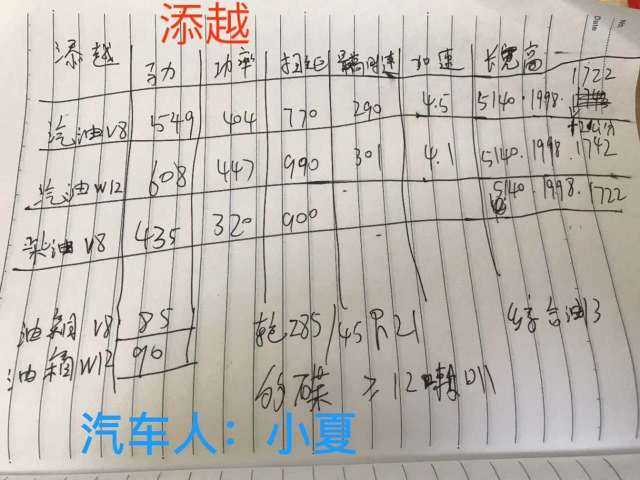 添越
添越 马力 功率 扭矩 最高时速 加速 长宽高
汽油V8 549 404 770 290 4.5 5140·1998 1722
汽油W12 608 447 900 301 4.1 5140·1998·1742
柴油V8 435 320 900 5140·1998·1722
油箱V8 85 胎285/45R21 综合油13
油箱W12 90
汽车人：小夏
No
Date